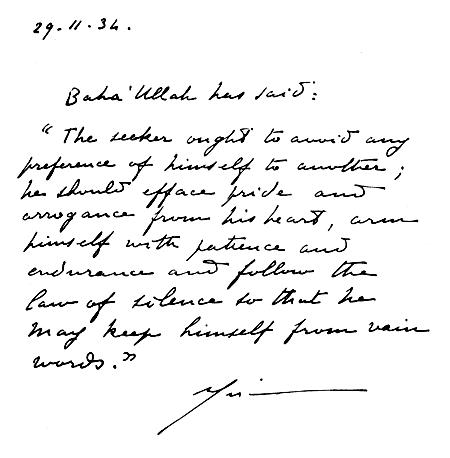 29.11.34.
Baha'Ullah has said:
"The seeker ought to avoid any
preference of himself to another;
he should efface pride and
arrogance from his heart, arm
himself with patience and
endurance and follow the
law of silence so that he
may keep himself from vain
words."